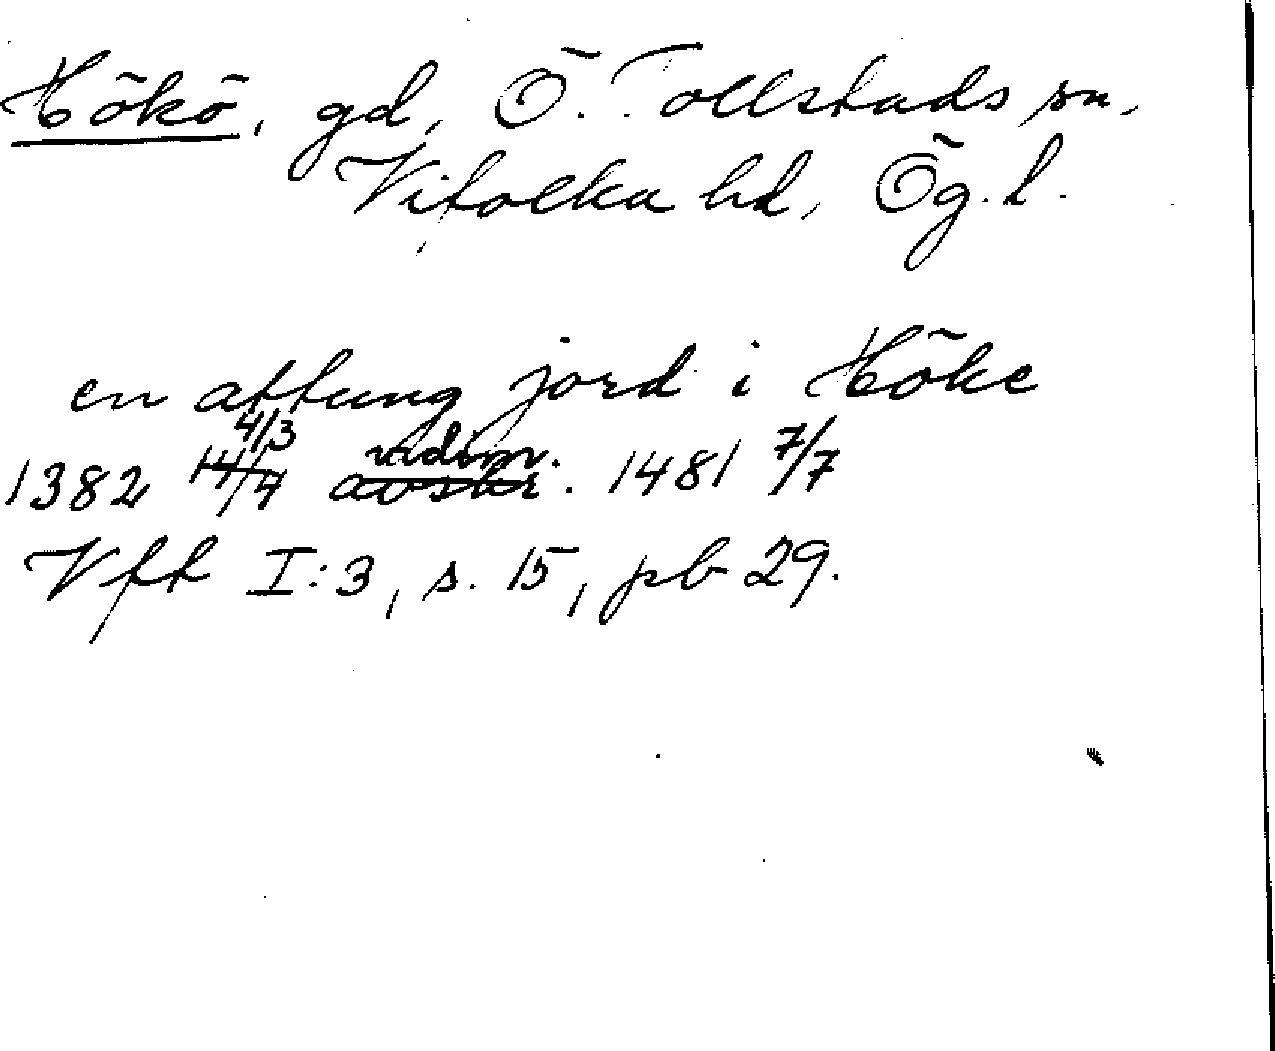 Hökö, gd, Ö. Tollstads sn,
Vifolka hd, Ög. l.
en attung jord i Höke
4/3 vidim.
1382 14/7 avskr. 1481 7/7
Vff I:3, s. 15, pb 29.